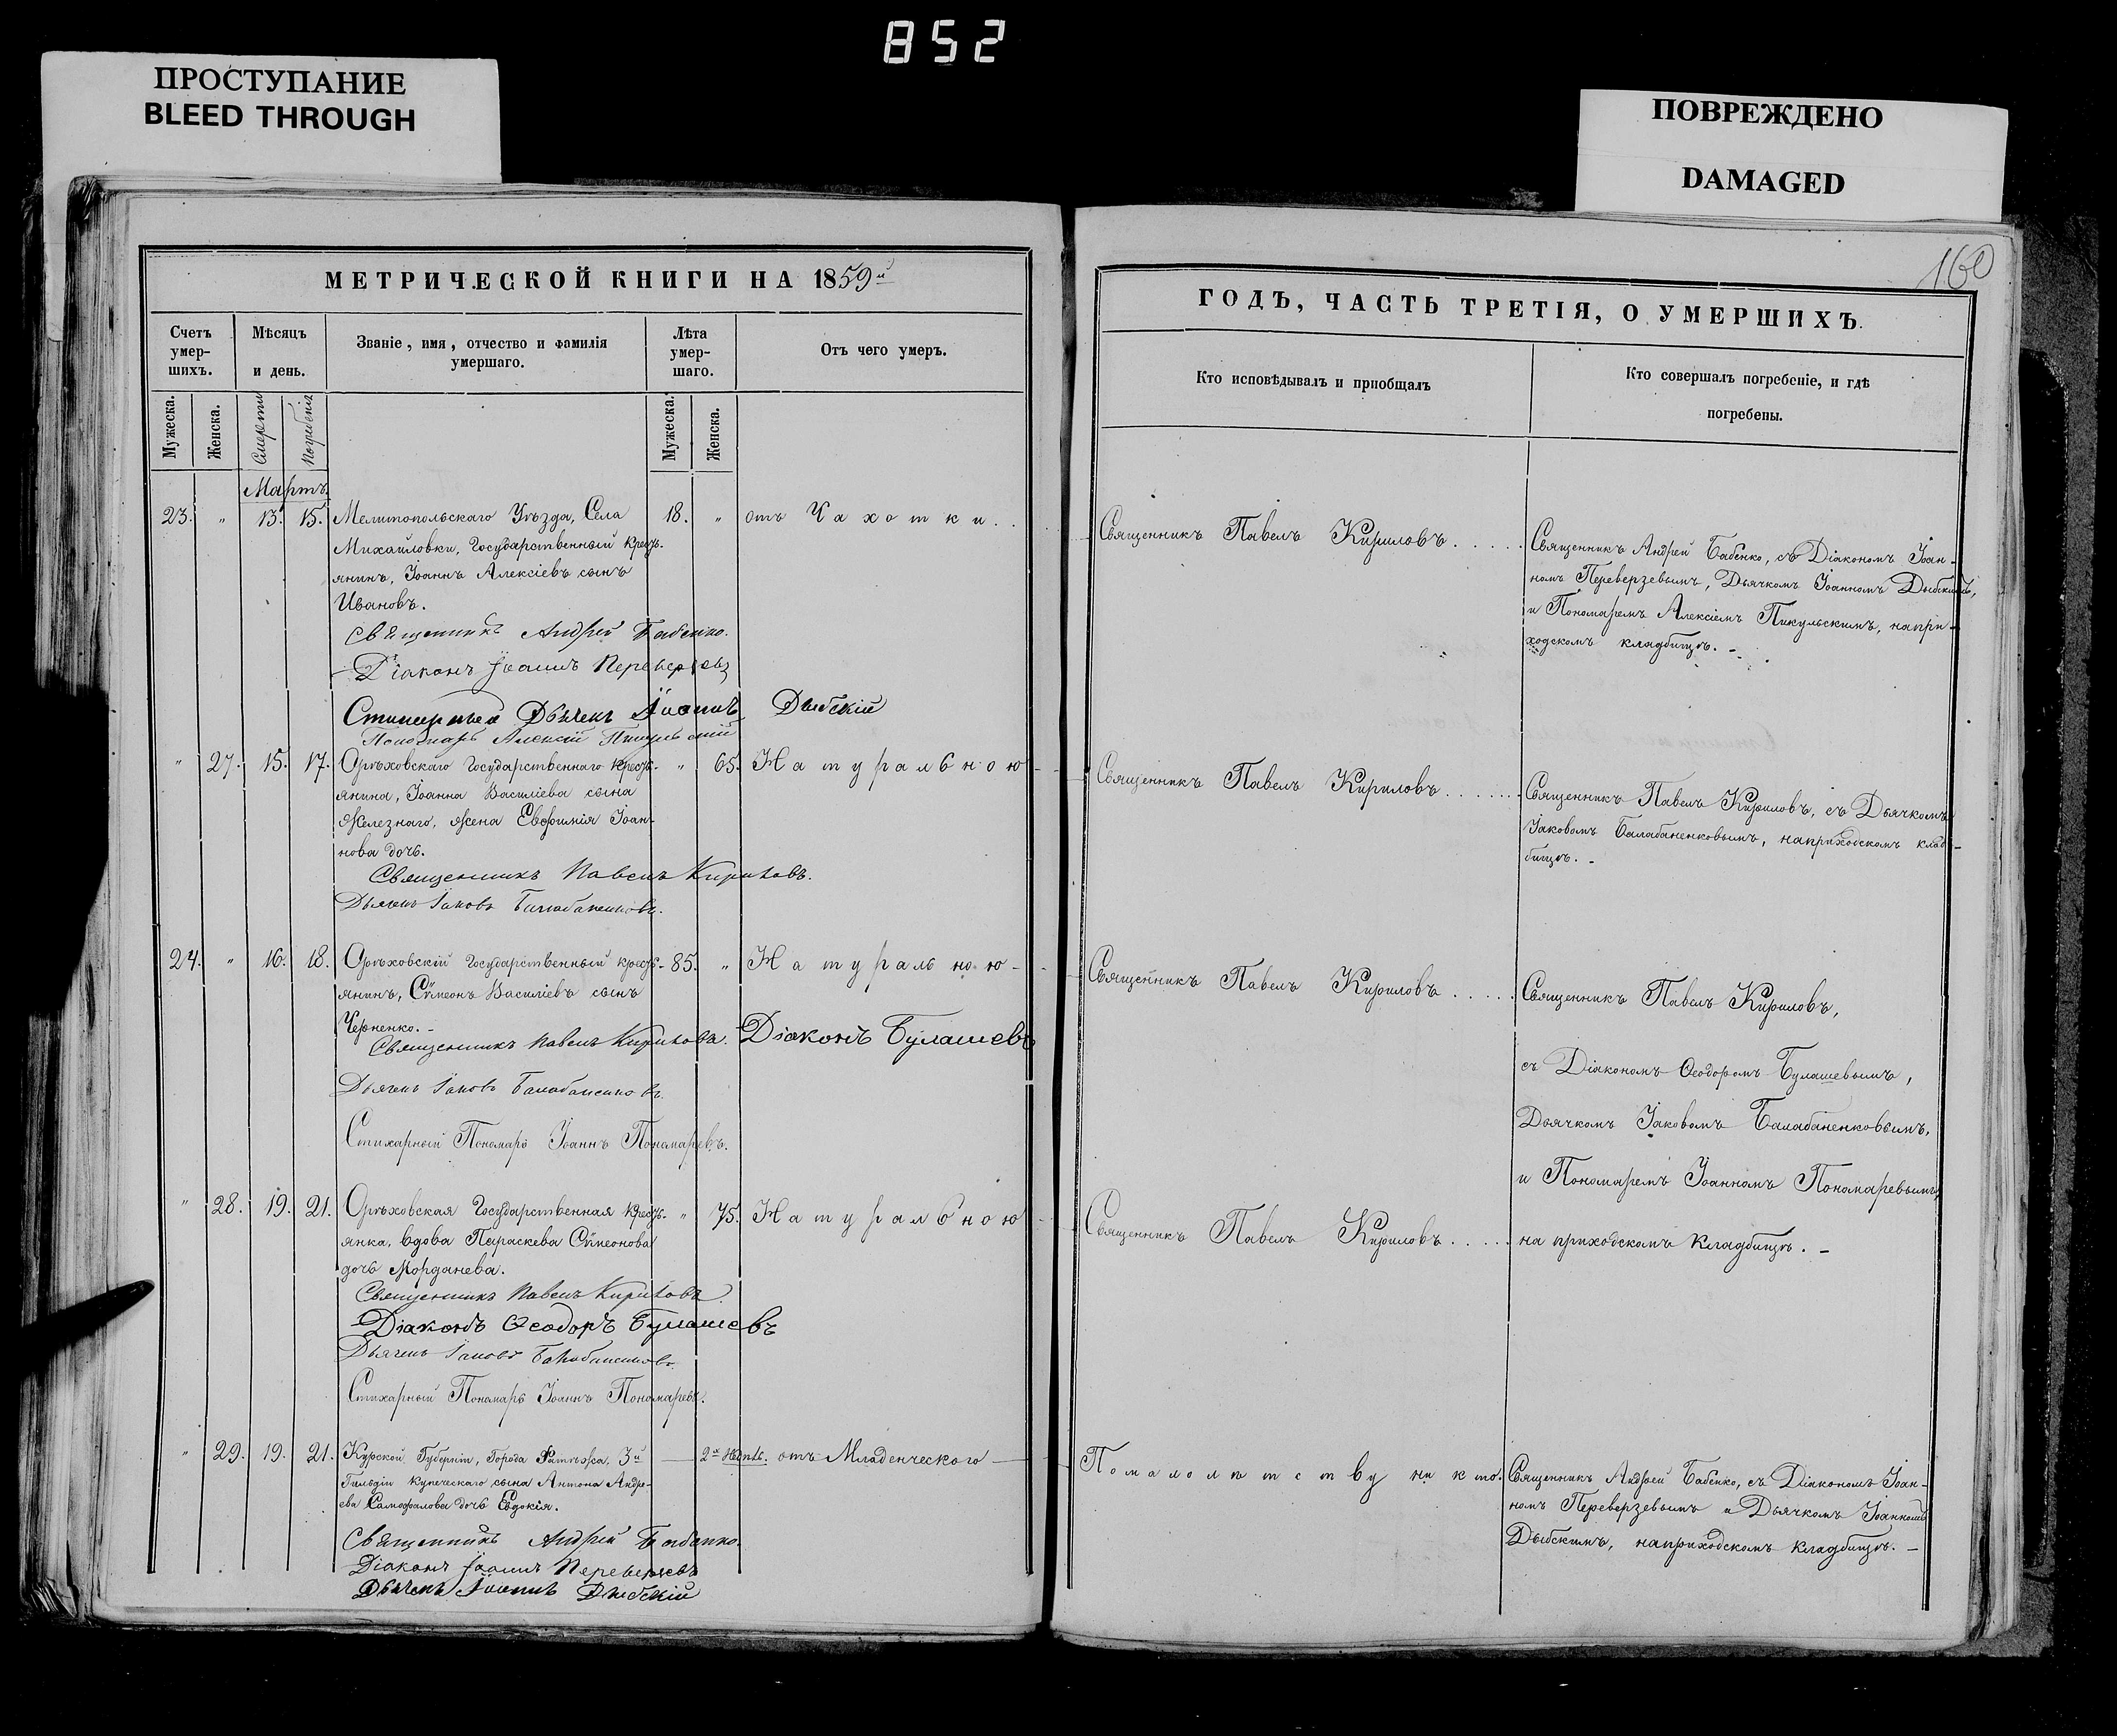 852
ПРОСТУПАНИЕ
BLEED THROUGH
ПОВРЕЖДЕНО
DAMAGED
160
МЕТРИЧЕСКОЙ КНИГИ НА 1859й
Счетъ умер-шихъ.
Мѣсяцъ и день.
Званіе, имя, отчество и фамилія умершаго.
Лѣта умер-шаго.
Отъ чего умеръ.
Мужеска.
Женска.
Смерти
Погребенія
Мужеска.
Женска.
Мартъ.
23. " 13. 15. Мелитопольскаго Уѣзда, Села 18. " отъ Чахотки..
Михайловки, Государственный Крест-
янинъ, Іоаннъ Алексіевъ сынъ
Ивановъ.
Священникъ Андрей Бабенко.
Діаконъ Іоаннъ Переверзевъ
Стихарный Дьячекъ Іоаннъ Дыбскій
Пономарь Алексій Пикульскій
" 27. 15. 17. Орѣховскаго Государственнаго крест- " 65. Натуральною
янина, Іоанна Василіева сына
Железнаго, жена Евфимія Іоан-
нова дочь.
Священникъ Павелъ Кириловъ.
Дьячекъ Іаковъ Балабаненковъ.
24. " 16. 18. Орѣховскій Государственный крест- 85. " Натуральною-
янинъ, Сѵмеонъ Василіевъ сынъ
Черненко.-
Священникъ Павелъ Кириловъ. Діаконъ Булашевъ
Дьячекъ Іаковъ Балабаненковъ.
Стихарный Пономарь Іоаннъ Пономаревъ.
" 28. 19. 21. Орѣховская Государственная крест- " 75. Натуральною
янка, вдова Параскева Сѵмеонова
дочь Морданева.
Священникъ Павелъ Кириловъ.
Діаконъ Ѳеодоръ Булашевъ
Дьячекъ Іаковъ Балабаненковъ.
Стихарный Пономарь Іоаннъ Пономаревъ.
" 29. 19. 21. Курской Губерніи, Города Фатѣжа, 3й — 2х нѣд. отъ Младенческаго
Гильдіи купеческаго сына Антона Андре-
ева Самофалова дочь Евдокія.
Священникъ Андрей Бабенко.
Діаконъ Іоаннъ Переверзевъ
Дьячекъ Іоаннъ Дыбскій
ГОДЪ, ЧАСТЬ ТРЕТІЯ, О УМЕРШИХЪ.
Кто исповѣдывалъ и пріобщалъ
Кто совершалъ погребеніе, и гдѣ
погребены.
Священникъ Павелъ Кириловъ.....
Священникъ Андрей Бабенко, съ Діакономъ Іоан-
номъ Переверзевымъ, Дьячкомъ Іоанномъ Дыбскимъ,
и Пономаремъ Алексіемъ Пикульскимъ, напри-
ходскомъ кладбищѣ.-
Священникъ Павелъ Кириловъ.......
Священникъ Павелъ Кириловъ, съ Дьячкомъ
Іаковомъ Балабаненковымъ, наприходскомъ клад-
бищѣ.-
Священникъ Павелъ Кириловъ.....
Священникъ Павелъ Кириловъ,
съ Діакономъ Ѳеодоромъ Булашевымъ,
Дьячкомъ Іаковомъ Балабаненковымъ,
и Пономаремъ Іоанномъ Пономаревымъ,
на приходскомъ кладбищѣ.-
Священникъ Павелъ Кириловъ.....
Помалолѣтству ни кто.
Священникъ Андрей Бабенко, съ Діакономъ Іоан-
номъ Переверзевымъ и Дьячкомъ Іоанномъ
Дыбскимъ, наприходскомъ кладбищѣ.-